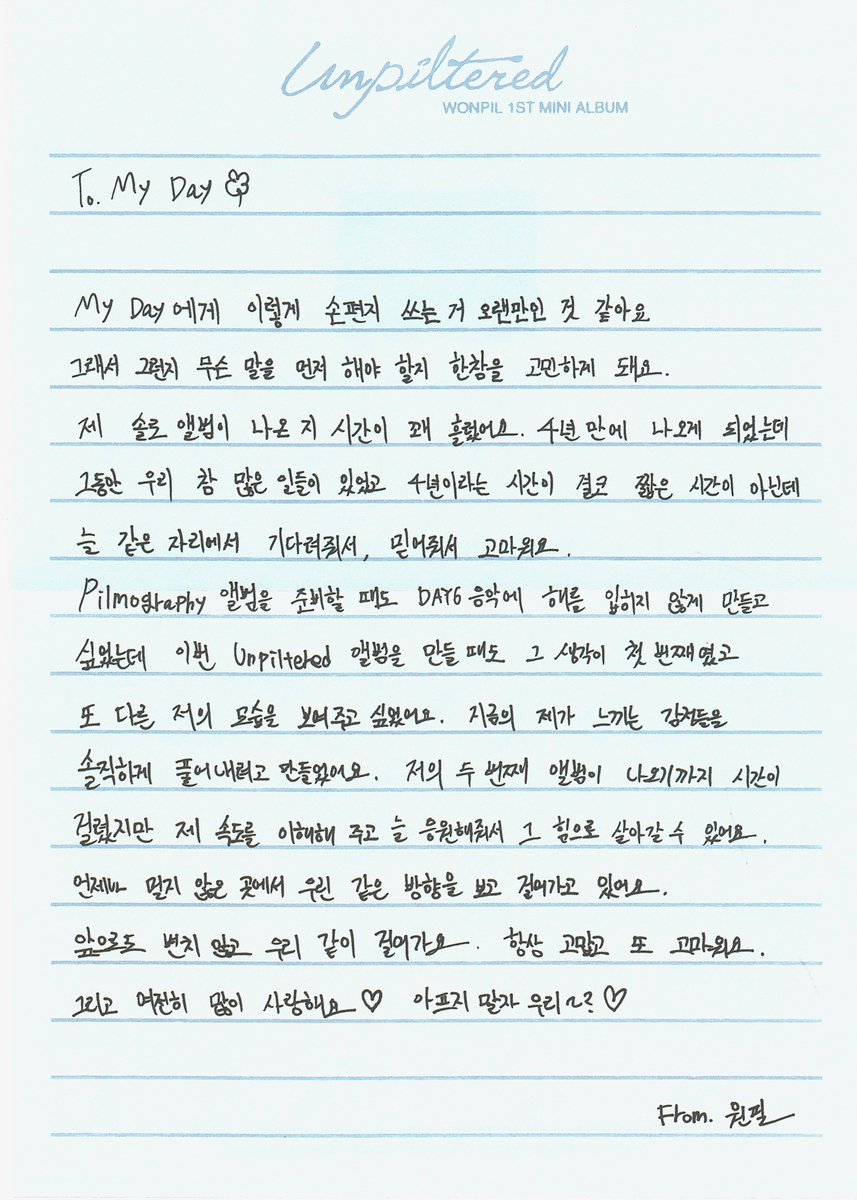 Unpiltered
WONPIL 1ST MINI ALBUM
To. My Day
My Day에게 이렇게 손편지 쓰는 거 오랜만인 것 같아요
그래서 그런지 무슨 말을 먼저 해야 할지 한참을 고민하게 돼요.
제 솔로 앨범이 나온 지 시간이 꽤 흘렀어요. 4년 만에 나오게 되었는데
그동안 우리 참 많은 일들이 있었고 4년이라는 시간이 결코 짧은 시간이 아닌데
늘 같은 자리에서 기다려줘서, 믿어줘서 고마워요.
Pilmography 앨범을 준비할 때도 DAY6 음악에 해를 입히지 않게 만들고
싶었는데 이번 Unpiltered 앨범을 만들 때도 그 생각이 첫 번째였고
또 다른 저의 모습을 보여주고 싶었어요. 지금의 제가 느끼는 감정들을
솔직하게 풀어내려고 만들었어요. 저의 두 번째 앨범이 나오기까지 시간이
걸렸지만 제 속도를 이해해 주고 늘 응원해줘서 그 힘으로 살아갈 수 있어요.
언제나 멀지 않은 곳에서 우린 같은 방향을 보고 걸어가고 있어요.
앞으로도 변치 않고 우리 같이 걸어가요. 항상 고맙고 또 고마워요.
그리고 여전히 많이 사랑해요♡ 아프지 말자 우리~?♡
From. 원필